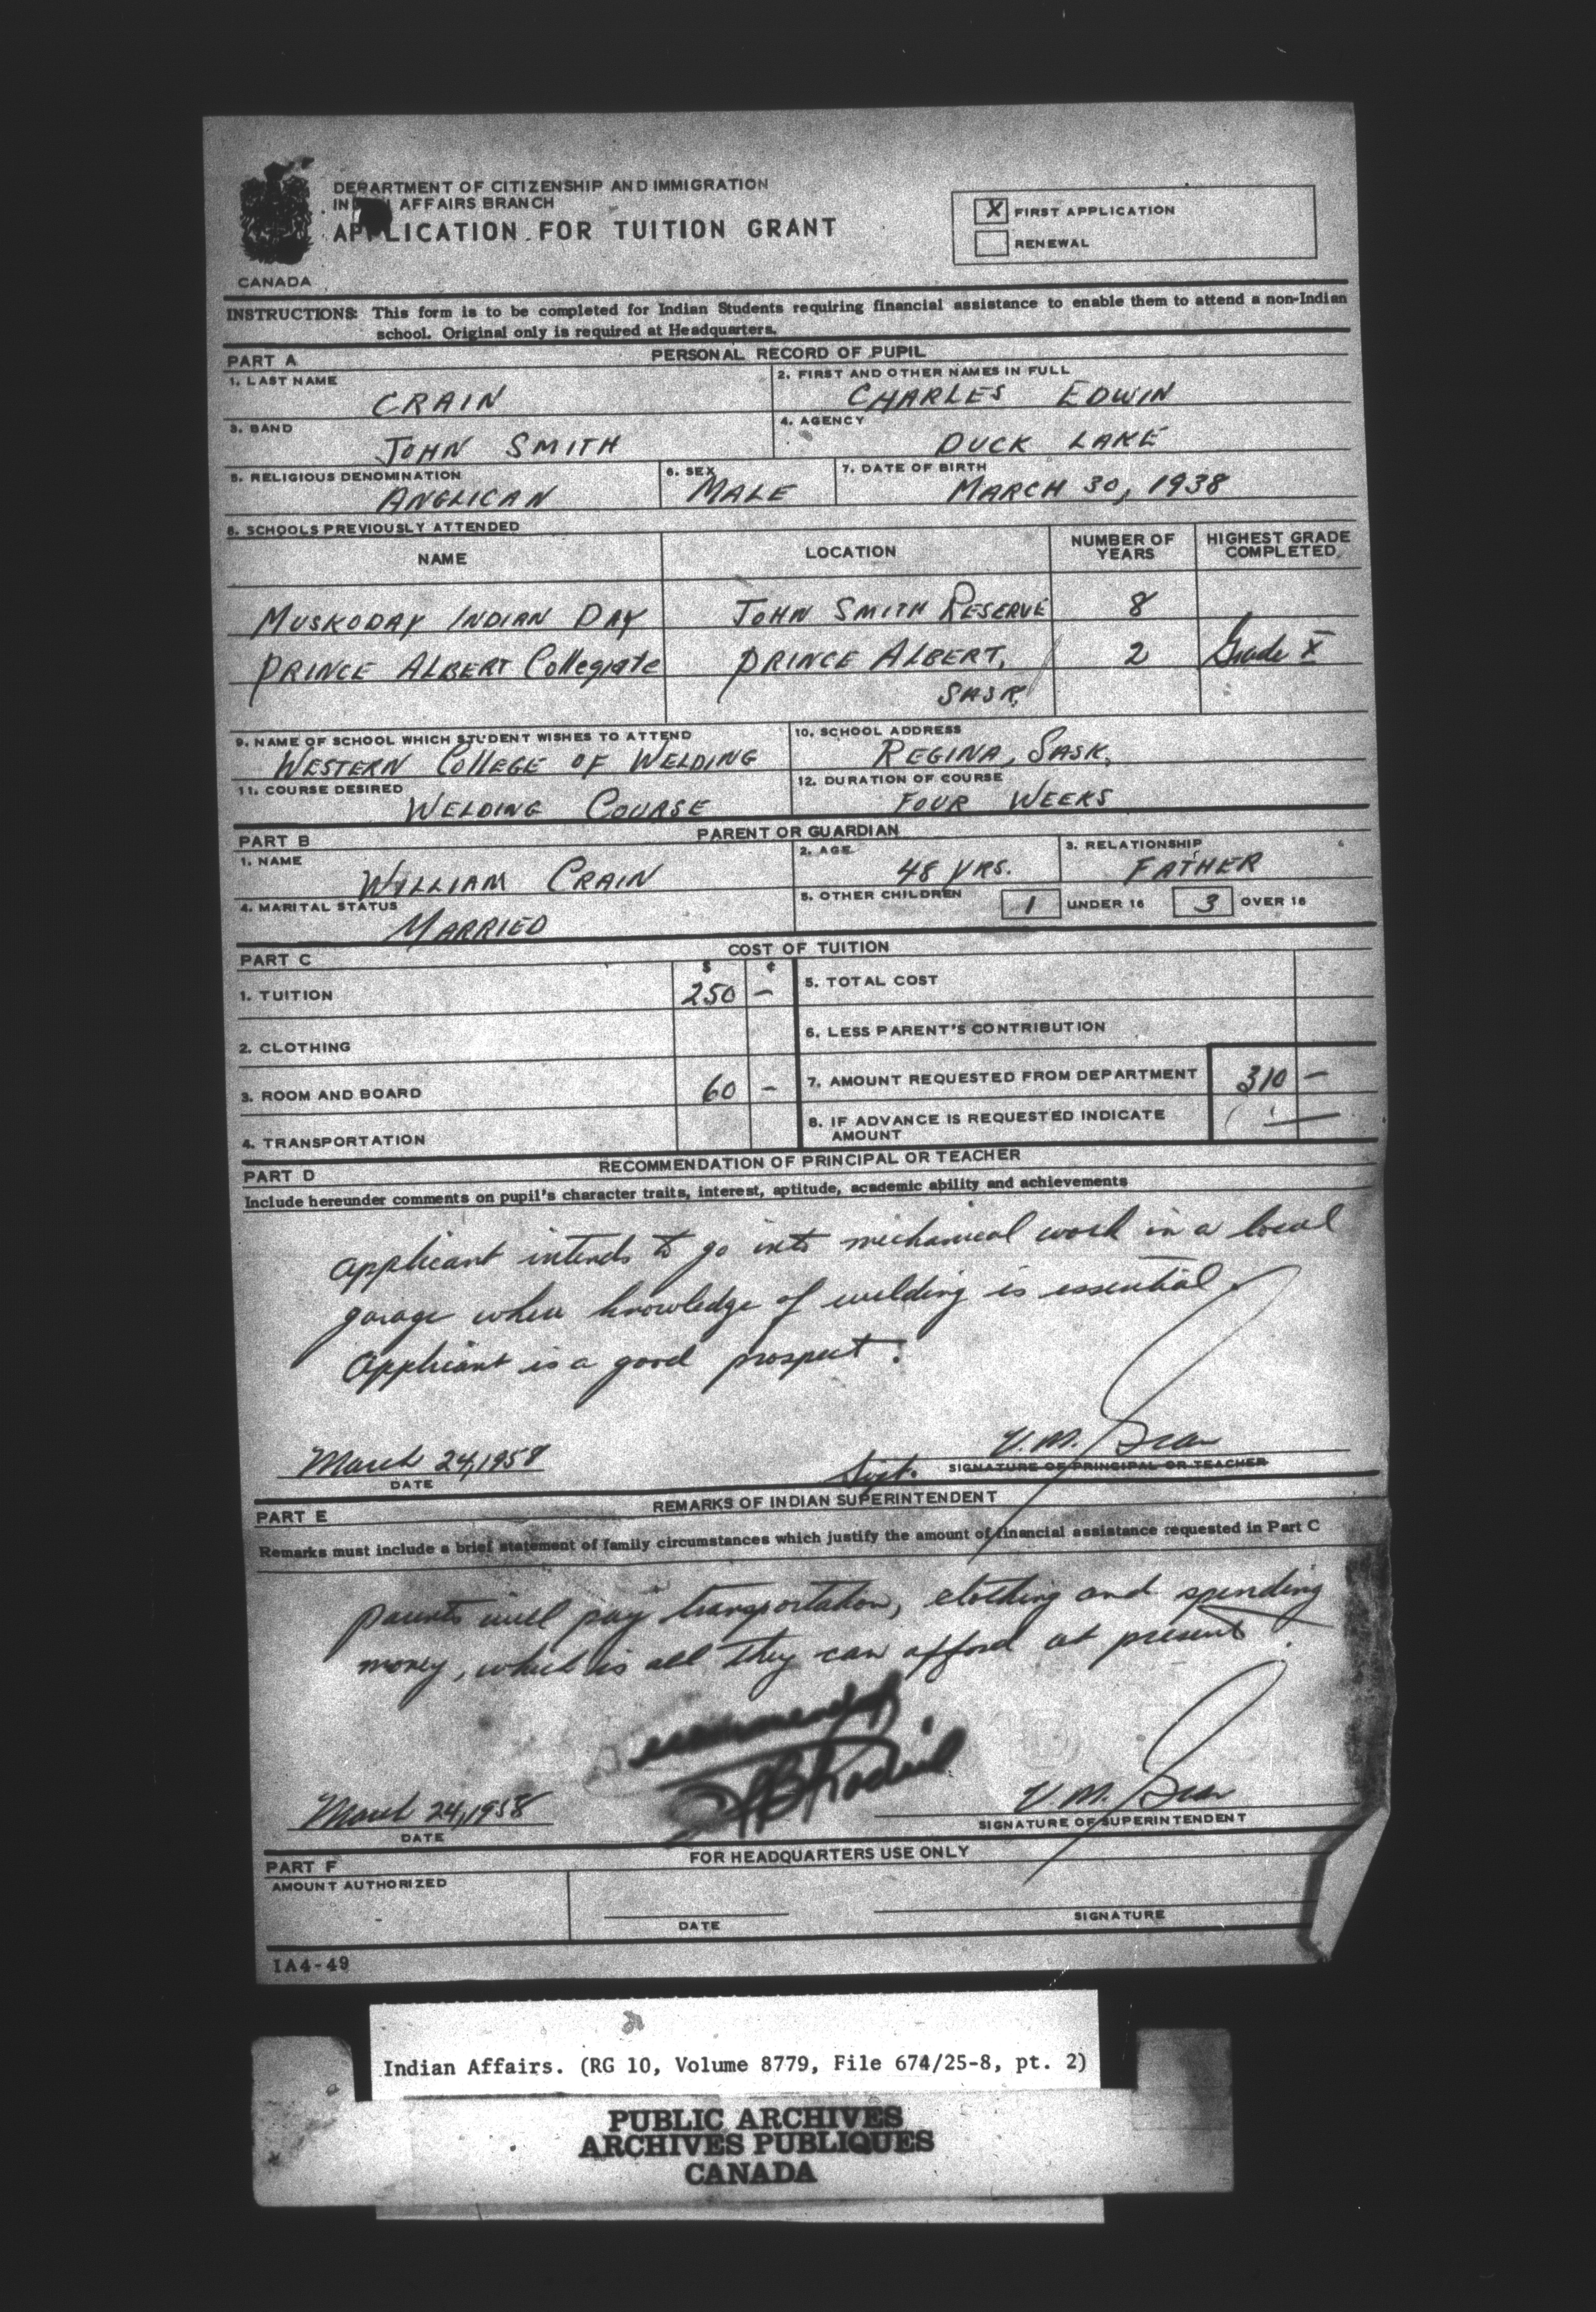 DEPARTMENT OF CITIZENSHIP AND IMMIGRATION
IN AFFAIRS BRANCH
APPLICATION FOR TUITION GRANT
CANADA
X FIRST APPLICATION
RENEWAL
INSTRUCTIONS: This form is to be completed for Indian Students requiring financial assistance to enable them to attend a non-Indian
school. Original only is required at Headquarters.
PART A PERSONAL RECORD OF PUPIL
1. LAST NAME 2. FIRST AND OTHER NAMES IN FULL
CRAIN CHARLES EDWIN
3. BAND 4. AGENCY
JOHN SMITH DUCK LAKE
5. RELIGIOUS DENOMINATION 6. SEX 7. DATE OF BIRTH
ANGLICAN MALE MARCH 30, 1938
8. SCHOOLS PREVIOUSLY ATTENDED
NAME LOCATION NUMBER OF YEARS HIGHEST GRADE COMPLETED
MUSKODAY INDIAN DAY JOHN SMITH RESERVE 8
PRINCE ALBERT Collegiate PRINCE ALBERT, 2 Grade X
SASK.
9. NAME OF SCHOOL WHICH STUDENT WISHES TO ATTEND 10. SCHOOL ADDRESS
WESTERN COllEGE OF WELDING REGINA, SASK.
11. COURSE DESIRED 12. DURATION OF COURSE
WELDING COURSE FOUR WEEKS
PART B PARENT OR GUARDIAN
1. NAME 2. AGE 3. RELATIONSHIP
WILLIAM CRAIN 48 YRS. FATHER
4. MARITAL STATUS 5. OTHER CHILDREN 1 UNDER 16 3 OVER 16
MARRIED
PART C COST OF TUITION
$ ¢
1. TUITION 250 — 5. TOTAL COST
2. CLOTHING 6. LESS PARENT'S CONTRIBUTION
3. ROOM AND BOARD 60 — 7. AMOUNT REQUESTED FROM DEPARTMENT 310 —
4. TRANSPORTATION 8. IF ADVANCE IS REQUESTED INDICATE
AMOUNT
PART D RECOMMENDATION OF PRINCIPAL OR TEACHER
Include hereunder comments on pupil's character traits, interest, aptitude, academic ability and achievements
Applicant intends to go into mechanical work in a local
garage where knowledge of welding is essential.
Applicant is a good prospect.
March 24, 1958 V. M.
DATE Supt. SIGNATURE OF PRINCIPAL OR TEACHER
PART E REMARKS OF INDIAN SUPERINTENDENT
Remarks must include a brief statement of family circumstances which justify the amount of financial assistance requested in Part C
Parents will pay transportation, clothing and spending
money, which is all they can afford at present.
March 24, 1958 V. M.
DATE SIGNATURE OF SUPERINTENDENT
PART F FOR HEADQUARTERS USE ONLY
AMOUNT AUTHORIZED
DATE SIGNATURE
IA4-49
Indian Affairs. (RG 10, Volume 8779, File 674/25-8, pt. 2)
PUBLIC ARCHIVES
ARCHIVES PUBLIQUES
CANADA